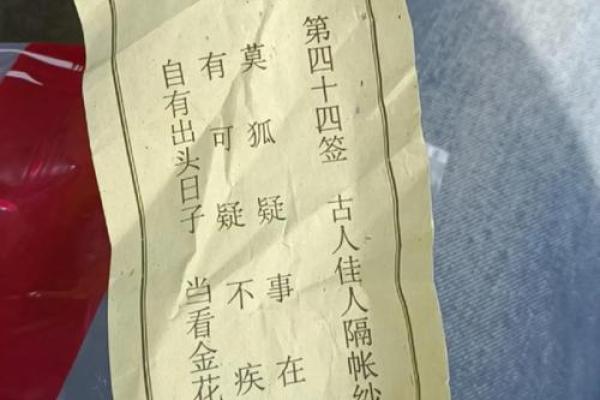 第四十四签 古人佳人隔帐纱
莫狐疑事在
有可疑不疾
自有出头日子 当看金花